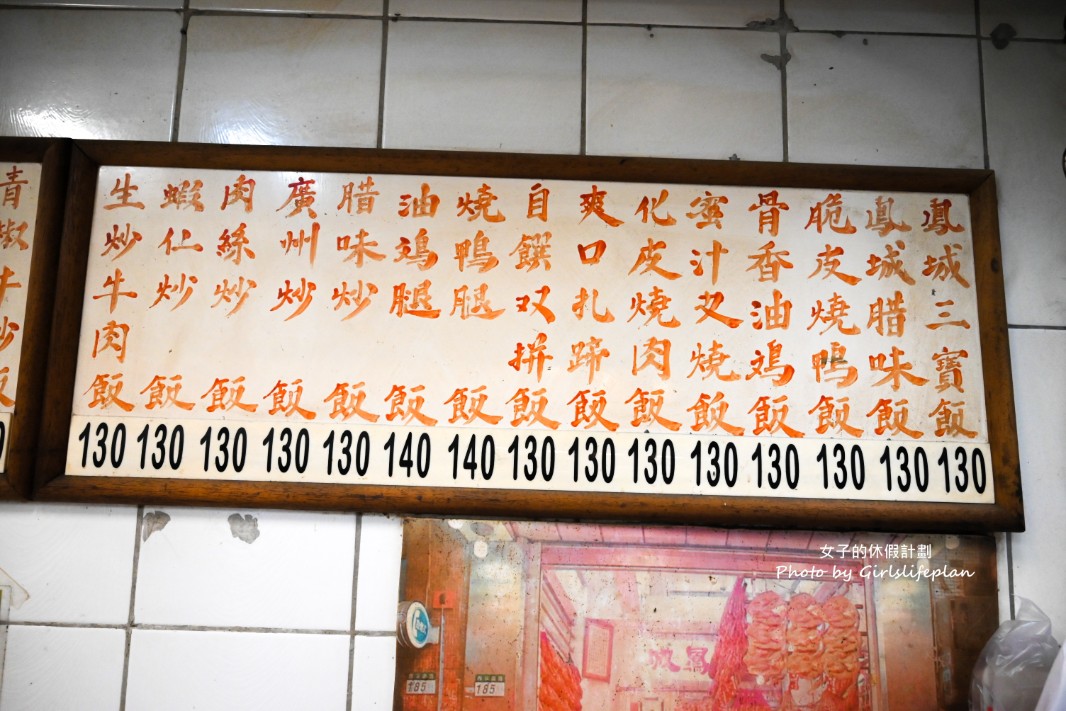 鳳城三寶飯 130
鳳城腊味飯 130
脆皮燒鴨飯 130
骨香油鸡飯 130
蜜汁叉燒飯 130
化皮燒肉飯 130
爽口扎蹄飯 130
自饌双拼飯 130
燒鴨腿飯 140
油鸡腿飯 140
腊味炒飯 130
廣州炒飯 130
肉絲炒飯 130
蝦仁炒飯 130
生炒牛肉飯 130
青椒牛炒飯
女子的休假計劃
Photo by Girlslifeplan
185
185